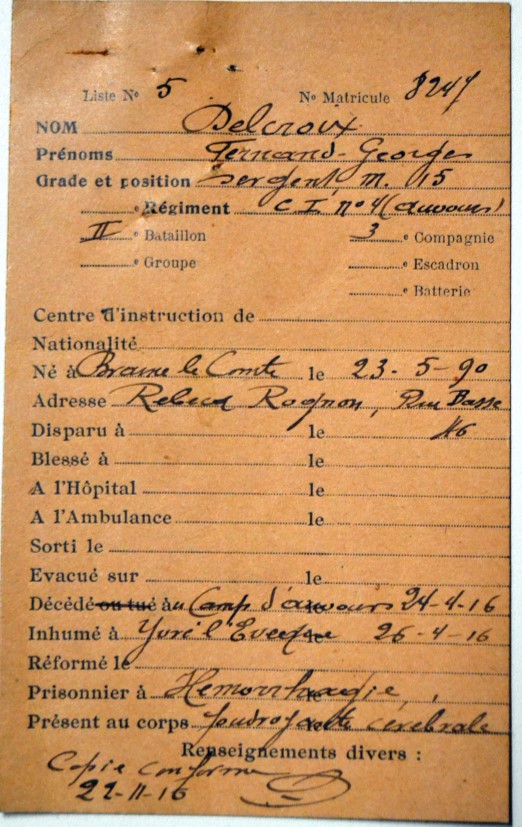 Liste No 5 No Matricule 8247
NOM Delcroix
Prénoms Fernand-Georges
Grade et position Sergent, m. 15
e Régiment C I n° 4 (Auvours)
II e Bataillon 3 e Compagnie
e Groupe e Escadron
e Batterie
Centre d'instruction de
Nationalité
Né à Braine le Comte le 23-5-90
Adresse Rebecq Rognon, Rue Basse
Disparu à le 46
Blessé à le
A l'Hôpital le
A l'Ambulance le
Sorti le
Evacué sur le
Décédé ou tué au Camp d'Auvours 24-4-16
Inhumé à Yvré l'Evêque 26-4-16
Réformé le
Prisonnier à Hemorrhagie
Présent au corps foudroyante cérébrale
Renseignements divers :
Copie conforme
22-11-16